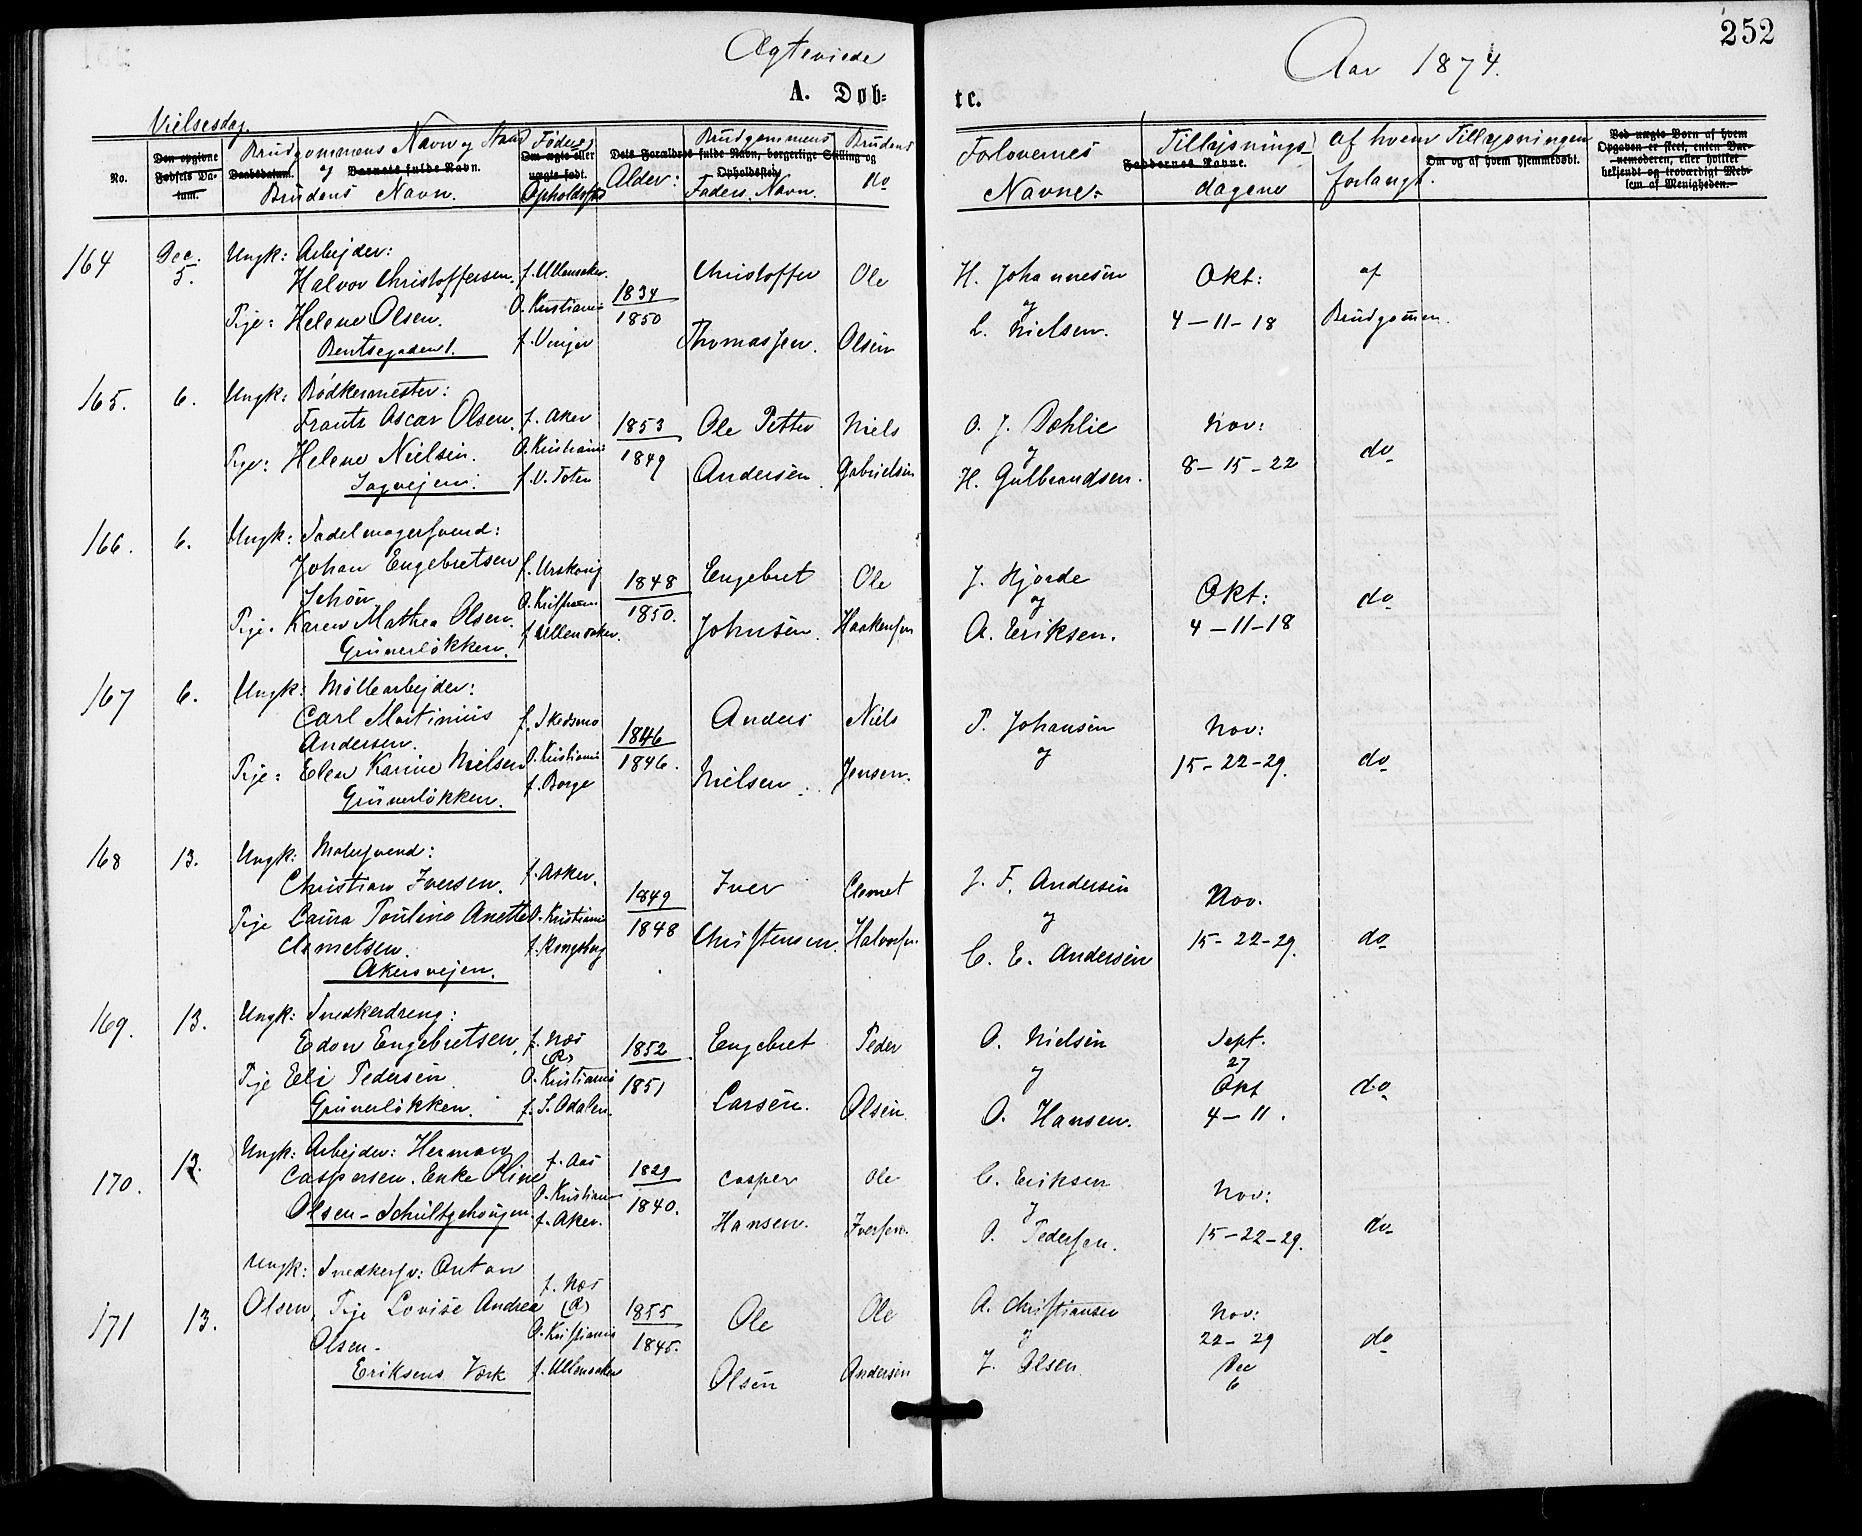 Ægteviede
A. Døb=
Vielsesdag.
No.
Den opgivne Fødsels Da-tum.
Brudgommens Navn og Stand
Daabsdatum. og Barnets fulde Navn.
Brudens Navn.
Føde og
Om ægte eller uægte født.
Opholdsste
Dets Forældres fulde Navn, borgerlige Stilling og Opholdssted.
Alder:
Brudgommens
Faders Navn.
Brudens
do
164 Dec. 5. Ungk: Arbejder:
Halvor Christoffersen. f. Ullensaker. 1834 Christoffer Ole
Pige: Helene Olsen. O. Kristiania 1850
Bentsegaden 1. f. Vinger Thomassen. Olsen
165. 6. Ungk: Bødkermester:
Frantz Oscar Olsen. f. Aker 1853 Ole Petter Niels
Pige: Helene Nielsen. O. Kristiania 1849 Andersen Gabrielsen
Sagvejen. f. V. Toten
166. 6. Ungk: Sadelmagersvend:
Johan Engebretsen f. Urskoug 1848 Engebret Ole
Schøn O. Kristiania 1850.
Pige. Karen Mathea Olsen. f. Ullensaker. Johnsen. Haakensen
Grünerløkken.
167 6. Ungk: Møllearbejder:
Carl Martinius f. Skedsmo 1846 Anders Niels
Andersen. O. Kristiania 1846.
Pige: Elen Karine Nielsen f. Borge Nielsen. Jensen.
Grünerløkken.
168 13. Ungk: Malersvend:
Christian Iversen. f. Asker. 1849 Iver Clemet
Pige Laura Pouline Anette O. Kristiania 1848
Clemetsen. f. Kongsberg Christensen. Halvorsen.
Akersvejen.
169. 13. Ungk: Snedkerdreng:
Edon Engebretsen. f. Næs (R) 1852 Engebret Peder
Pige Eli Pedersen O. Kristiania 1851
Grünerløkken. f. S. Odalen. Larsen. Olsen.
170. 13. Ungk: Arbejder: Herman f. Aas 1829
Caspersen. Enke Oline O. Kristiania 1840. Casper Ole
Olsen - Schultzehougen f. Aker. Hansen. Iversen.
171 13. Ungk: Snedkersv: Anton f. Næs (R)
Olsen, Pige Lovise Andrea O. Kristiania 1855 Ole Ole
Olsen - 1845.
Eriksens Værk f. Ullensaker Olsen Andersen
252
Aar 1874.
te.
Forlovernes
Faddernes Navne.
Navne:
Tillysnings-
dagene
Af hvem Tillysningen
Om og af hvem hjemmedøbt.
forlangt.
Ved uægte Børn af hvem Opgaven er skeet, enten Bar-nemoderen, eller hvilket bekjendt og troværdigt Med-lem af Menigheden.
H. Johannesen Okt: af
og
L. Nielsen. 4 - 11 - 18 Brudgommen.
O. J. Dæhlie Nov:
og do
H. Gulbrandsen. 8 - 15 - 22
J. Hjorde Okt:
og do
A. Eriksen. 4 - 11 - 18
P. Johansen Nov:
og 15 - 22 - 29. do
J. F. Andersen Nov.
og
C. E. Andersen 15 - 22 - 29. do
O. Nielsen Sept. 27
og Okt do
O. Hansen. 4 - 11.
C. Eriksen Nov:
og do
O. Pedersen. 15 - 22 - 29.
A. Christiansen Nov:
og 22 - 29 do
J. Olsen Dec 6